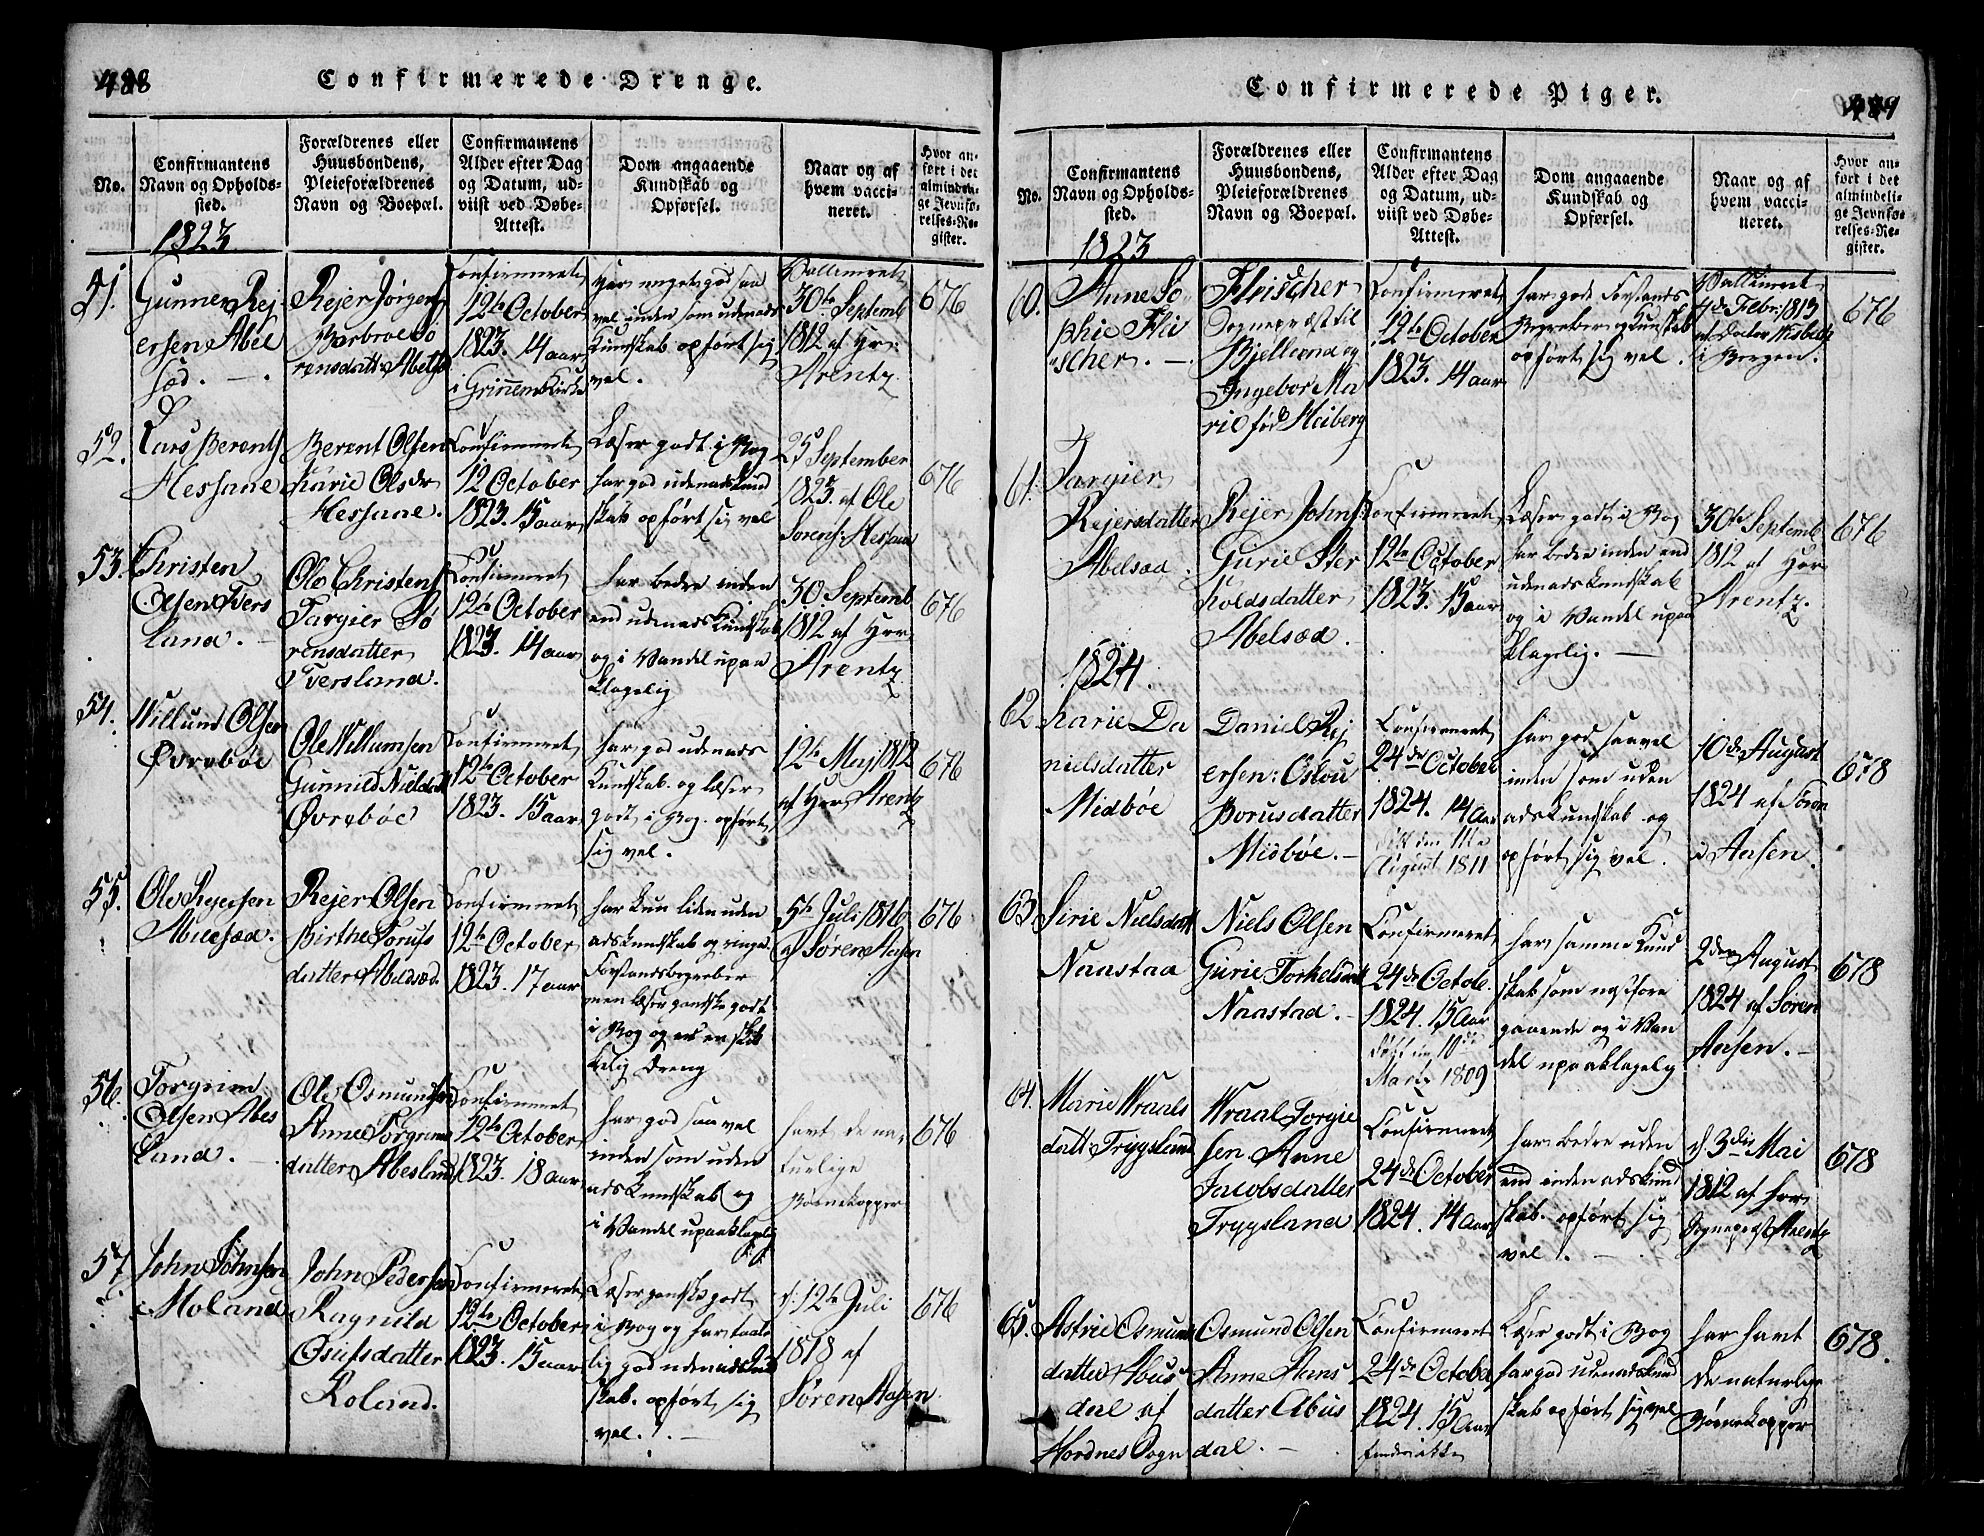 488
Confirmerede Drenge.
No.
Confirmantens
Navn og Opholds-
sted.
1823
Forældrenes eller
Huusbondens,
Pleieforældrenes
Navn og Boepæl.
Confirmantens
Alder efter Dag
og Datum, ud-
viist ved Døbe-
Attest.
Dom angaaende
Kundskab og
Opførsel.
Naar og af
hvem vacci-
neret.
Hvor an-
ført i det
almindeli-
ge Jevnfø-
relses-Re-
gister.
51.
Gunner Rej-
ersen Abel
sæd.
Rejer Jørgens
Barbroe Sø
rensdatt:
Confirmeret
12te October
1823. 14 aar
i Kirke
har meget god saa
vel inden som udenads
Kundskab opført sig
vel.
Vaccineret
30te Septemb
1812 af Hr:
Arentz
676
52.
Lars Berents
Hessane
Berent Olsen
Karie Olsdr
Hessane.
Confirmeret
12 October
1823. 15 aar
Læser godt i Bog
har god udenadskund
skab opført sig vel
25 September
1823 af Ole
Sørens: Hessane
676
53.
Christen
Olsen Tvers
land.
Ole Christens
Targier Sø
rensdatter
Tversland.
Confirmeret
12te October
1823. 14 aar
har bedre inden
end udenads Kundskab
og i Vandel upaa
klagelig
30 Septemb
1812 af Hrr
Arentz
676
54.
Willund Olsen
Øvrebøe
Ole Willumsen
Gunnild Nielsdatt
Øvrebøe
Confirmeret
12te October
1823. 15 aar
har god udenads
Kundskab. og læser
godt i Bog. opført
sig vel.
12te Maj 1812
af Hrr Arentz
676
55.
Ole Rejersen
Abelsæd.
Rejer Olsen
Birthe
datter Abelsæd.
Confirmeret
12te October
1823. 17 aar
har kun liden uden
adskundskab og ringe
Forstandsbegreber
men læser ganske godt
i Bog og er en skik
kelig Dreng
5te Juli 1816
af Søren Aasen
676
56.
Torgrim
Olsen Abes
land.
Ole Osmundsen
Anne Torgrims
datter Abesland
Confirmeret
12te October
1823. 18 aar
har god saavel
inden som uden
adskundskab og
i Vandel upaaklagelig
havt de na
turlige
Børnekopper
676
57.
John Johnsen
Moland
John Pedersen
Ragnild
Osufsdatter
Roland.
Confirmeret
12te October
1823. 15 aar
Læser ganske godt
i Bog og har taale
lig god udenadskund
skab. opført sig
vel.
d: 12te Juli
1818 af
Søren Aasen
676
Confirmerede Piger.
489
No.
Confirmantens
Navn og Opholds-
sted.
1823
Forældrenes eller
Huusbondens,
Pleieforældrenes
Navn og Boepæl.
Confirmantens
Alder efter Dag
og Datum, ud-
viist ved Døbe-
Attest.
Dom angaaende
Kundskab og
Opførsel.
Naar og af
hvem vacci-
neret.
Hvor an-
ført i det
almindeli-
ge Jevnfø-
relses-Re-
gister.
60.
Anne So
phie Flei
scher.
Fleischer
Sognepræst til
Bjelland og
Ingebor Ma
rie fød Heiberg
Confirmeret
12te October
1823. 14 aar
har gode Forstands
Begreber og Kundskab
opført sig vel.
Vaccineret
4de Febr: 1813
af Doctor
i Bergen.
676
61.
Targier
Rejersdatter
Abelsæd.
Rejer Johns:
Gurie Ster
koldsdatter
Abelsæd.
Confirmeret
12te October
1823. 15 aar
Læser godt i Bog
har bedre inden end
udenadskundskab
og i Vandel upaa
klagelig.
30te Septemb
1812 af Hrr
Arentz.
676
1824.
62
Karie Da
nielsdatter
Midbøe
Daniel Rej
ersen: Oslou
Borusdatter
Midbøe.
Confirmeret
24de October
1824. 14 aar
født den 11te
August 1811
har god saavel
inden som uden
adskundskab og
opført sig vel.
10de August
1824 af Søren
Aasen.
678
63.
Sirie Nielsdatt
Naastad
Niels Olsen
Gurie Torkelsdatt
Naastad.
Confirmeret
24de Octobe.
1824. 15 Aar
født den 10de
Marty 1809
har samme Kund
skab som næstfore
gaaende og i Van
del upaaklagelig
2den August
1824 af Søren
Aasen.
678
64.
Marie Wraals
datt Trygsland
Wraal Torgie
sen Anne
Jacobsdatter
Trygsland
Confirmeret
24de October
1824. 14 Aar
har bedre uden
end indenadskund
skab. opført sig
vel.
d. 3die Mai
1812 af Hrr
Sognepræst Arentz
678
65.
Astrie Osmunds
datter Abus
dal af
Hordnes Sogn
Osmund Olsen
Anne Aans
datter Abus
dal.
Confirmeret
24de October
1824. 15 Aar
findes ikke
Læser godt i Bog
har god udenadskund
skab opført sig vel
har havt
de naturlige
Børnekopper
678.